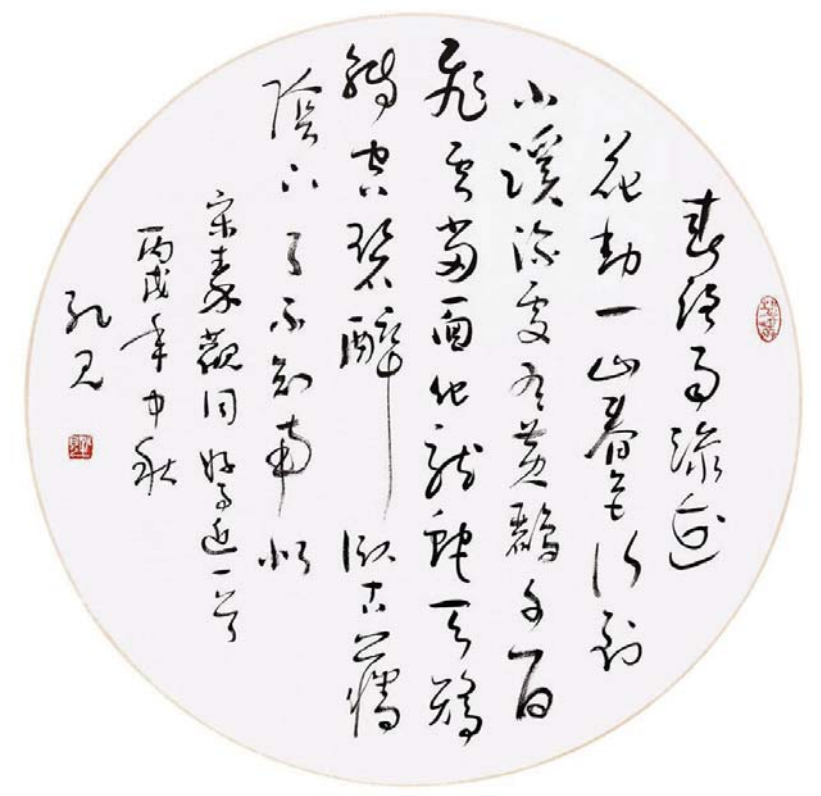 春路雨添花
花動一山春色行到
小溪深處有黃鸝千百
飛雲當面化龍蛇夭矯
轉空碧醉臥古藤
陰下了不知南北
宋秦觀詞好事近一首
丙戌年中秋
孔見